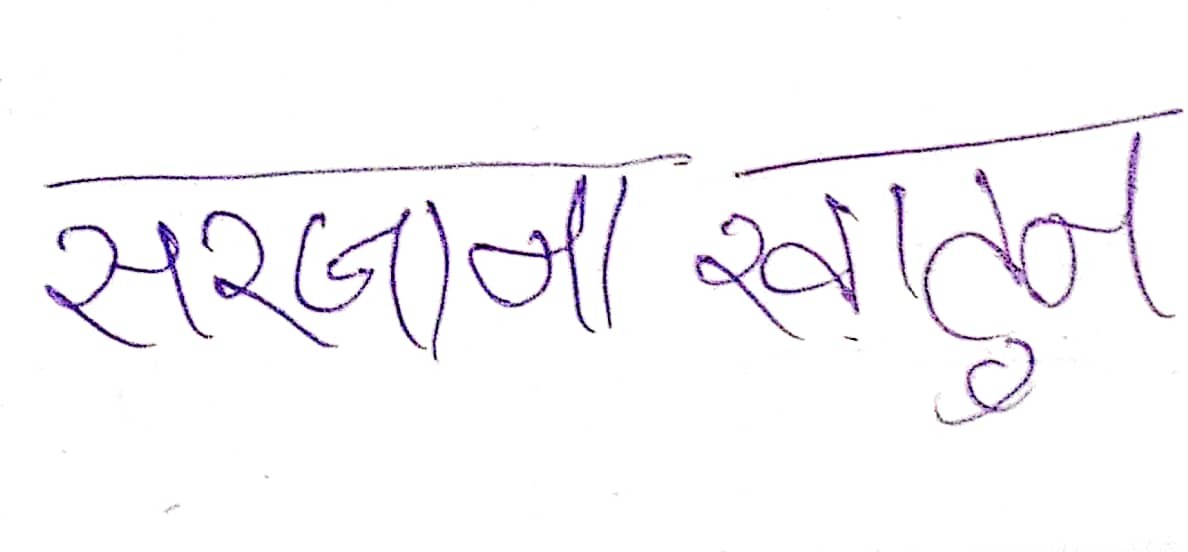 सरजाना खातुन